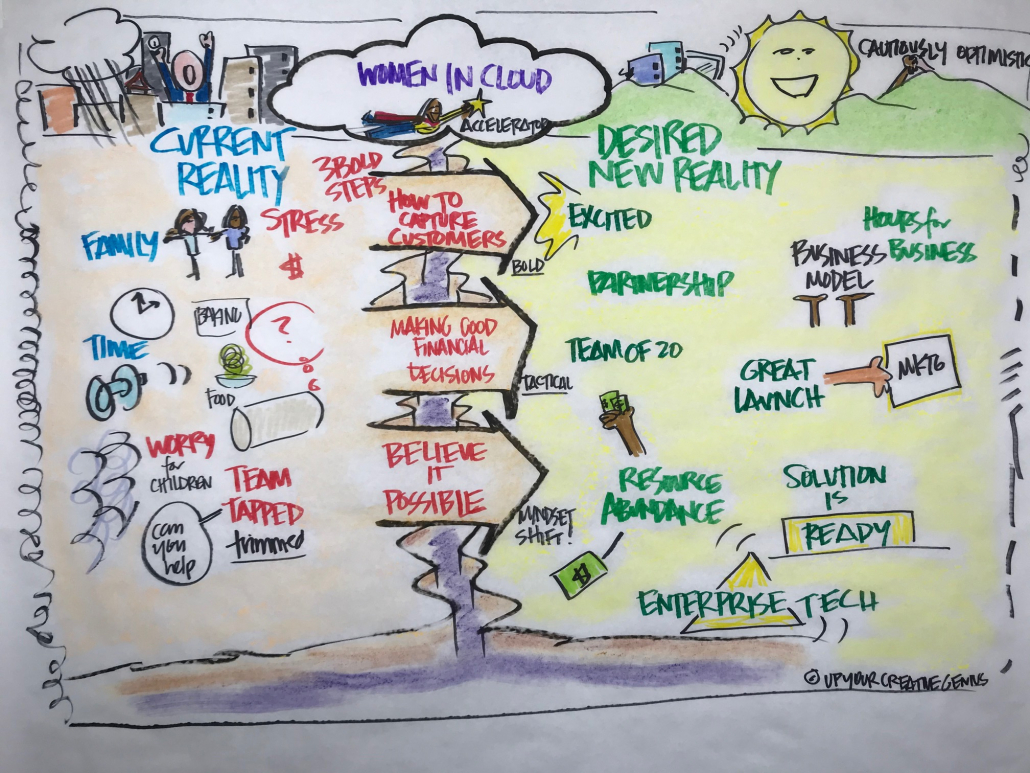 WOMEN IN CLOUD
ACCELERATOR
CAUTIOUSLY OPTIMISTIC
CURRENT
REALITY
FAMILY
STRESS
$
TIME
BAKING
?
FOOD
WORRY
for
CHILDREN
TEAM
TAPPED
trimmed
can
you
help
3 BOLD
STEPS
HOW TO
CAPTURE
CUSTOMERS
BOLD
MAKING GOOD
FINANCIAL
DECISIONS
TACTICAL
BELIEVE
IT
POSSIBLE
MINDSET
SHIFT!
DESIRED
NEW REALITY
EXCITED
HOURS for
BUSINESS
BUSINESS
MODEL
PARTNERSHIP
TEAM OF 20
GREAT
LAUNCH
MKTG
RESOURCE
ABUNDANCE
$
SOLUTION
IS
READY
ENTERPRISE TECH
© UPYOURCREATIVEGENIUS